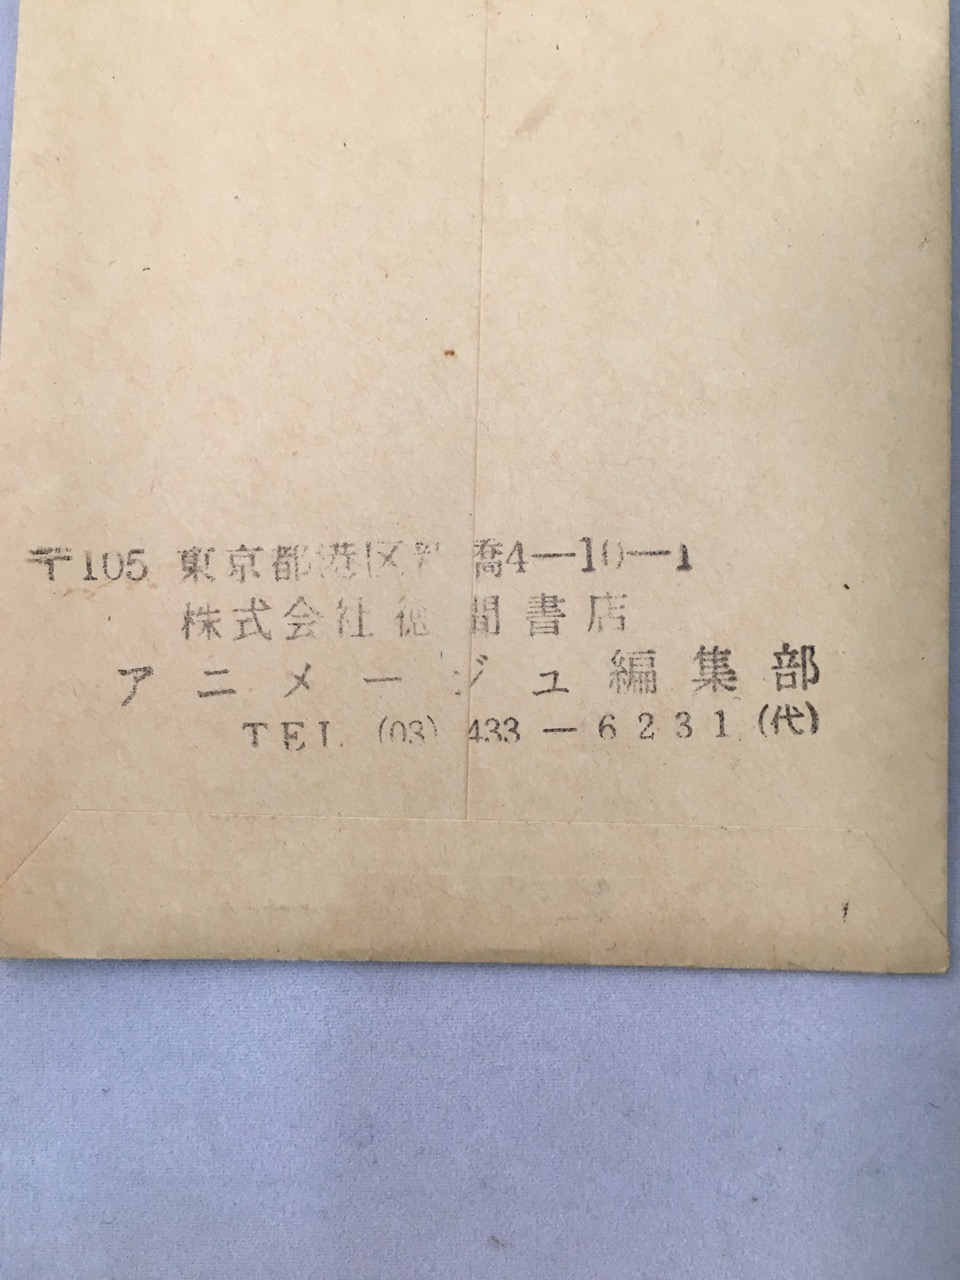 〒105 東京都港区新橋4-10-1
株式会社徳間書店
アニメージュ編集部
TEL (03) 433-6231(代)